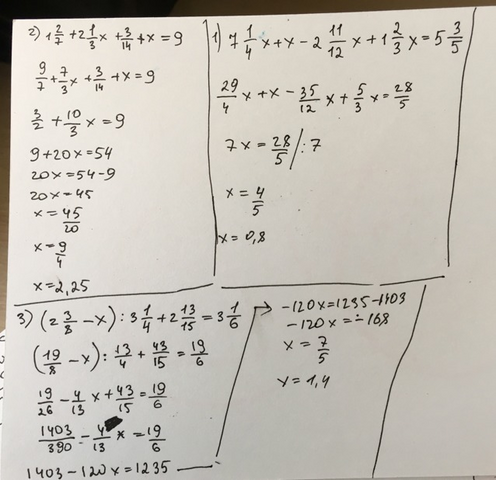 2) 1 2/7 + 2 1/3 x + 3/14 + x = 9
9/7 + 7/3 x + 3/14 + x = 9
3/2 + 10/3 x = 9
9 + 20x = 54
20x = 54 - 9
20x = 45
x = 45/20
x = 9/4
x = 2,25
1) 7 1/4 x + x - 2 11/12 x + 1 2/3 x = 5 3/5
29/4 x + x - 35/12 x + 5/3 x = 28/5
7x = 28/5 /:7
x = 4/5
x = 0,8
3) (2 3/8 - x) : 3 1/4 + 2 13/15 = 3 1/6
(19/8 - x) : 13/4 + 43/15 = 19/6
19/26 - 4/13 x + 43/15 = 19/6
1403/390 - 4/13 x = 19/6
1403 - 120x = 1235
-120x = 1235 - 1403
-120x = -168
x = 7/5
x = 1,4